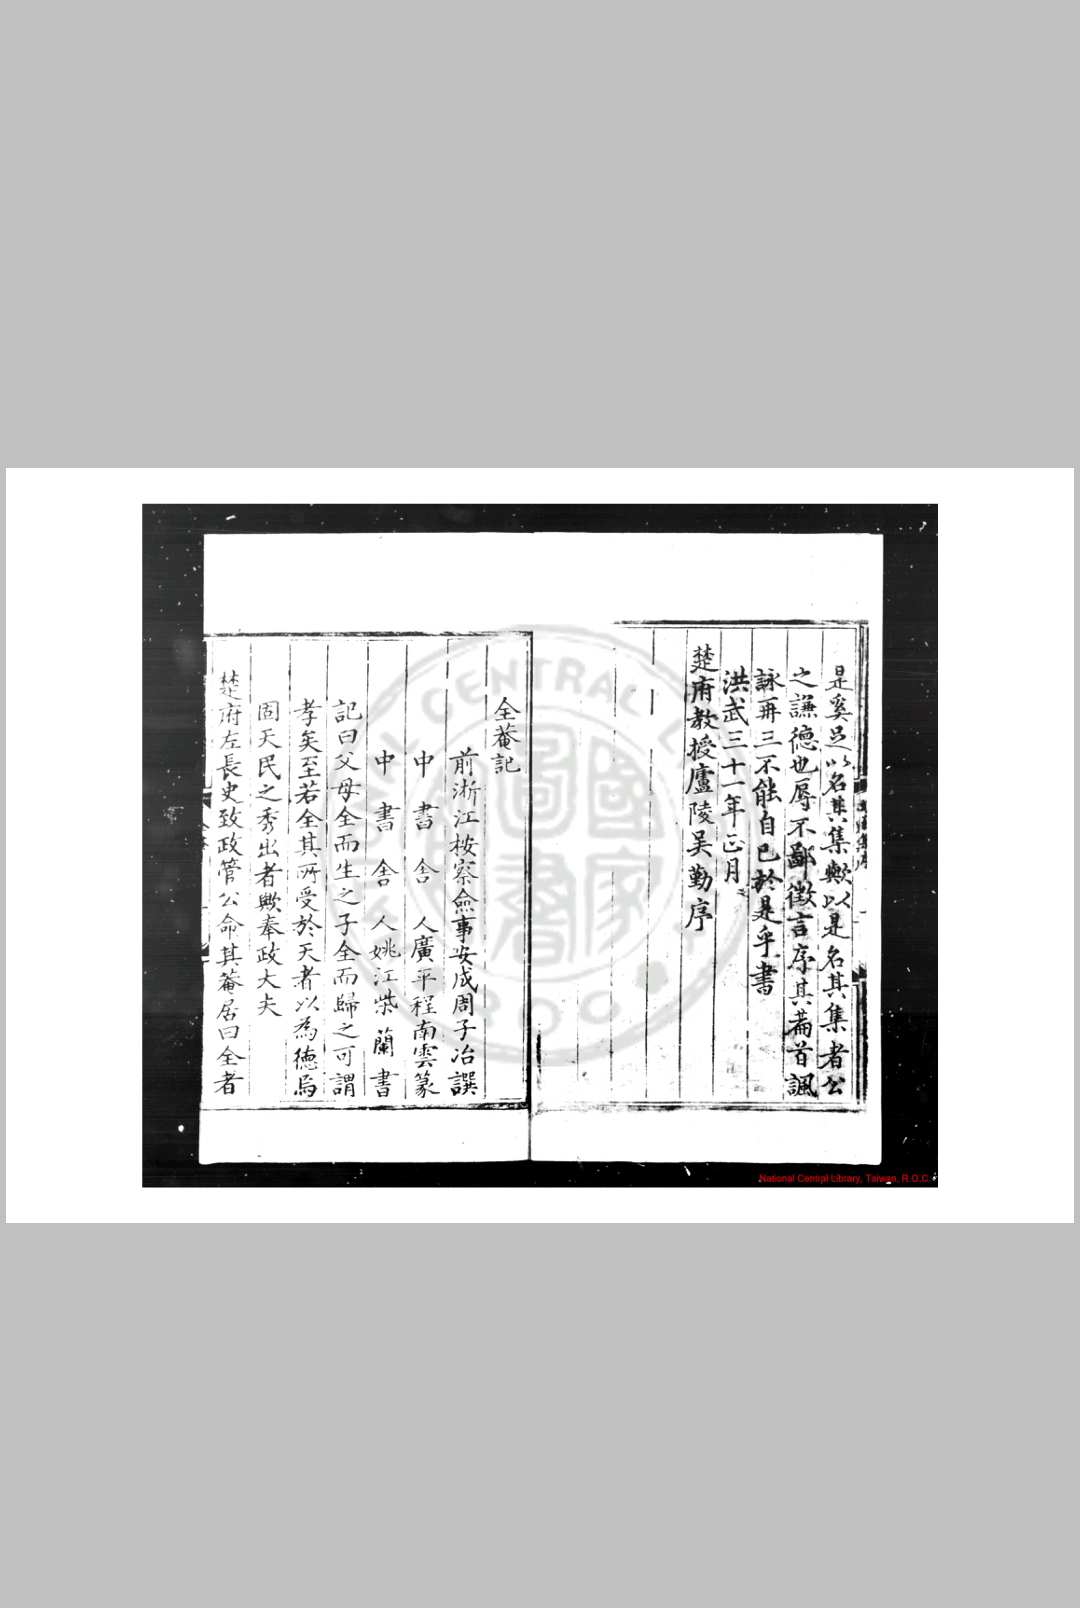 是奚足以名其集歟以是名其集者公
之謙德也辱不鄙徵言序其篇首諷
詠再三不能自已於是乎書
洪武三十一年正月
楚府教授廬陵吴勤序
全菴記
前浙江按察僉事安成周子冶譔
中書舍人廣平程南雲篆
中書舍人姚江柴蘭書
記曰父母全而生之子全而歸之可謂
孝矣至若全其所受於天者以為德焉
固天民之秀出者歟奉政大夫
楚府左長史致政管公命其菴居曰全者
National Central Library, Taiwan, R.O.C.